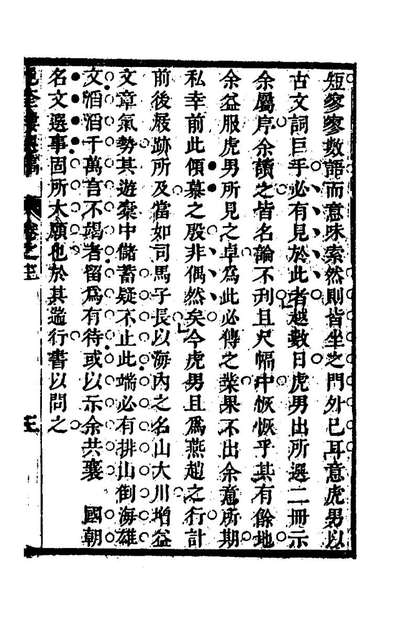 短寥寥數語而意味索然則皆坐之門外已耳意虎男以
古文詞巨乎必有見於此者越數日虎男出所選二冊示
余屬序余讀之皆名論不刋且尺幅中恢恢乎其有餘地
余益服虎男所見之卓為此必傳之業果不出余意所期
私幸前此傾慕之殷非偶然矣今虎男且為燕趙之行計
前後屐跡所及當如司馬子長以海內之名山大川增益
文章氣勢其遊橐中儲蓄疑不止此端必有排山倒海雄
文滔滔千萬言不竭者留為有待或以示余共襄　國朝
名文選事固所大願也於其遄行書以問之
卷之三